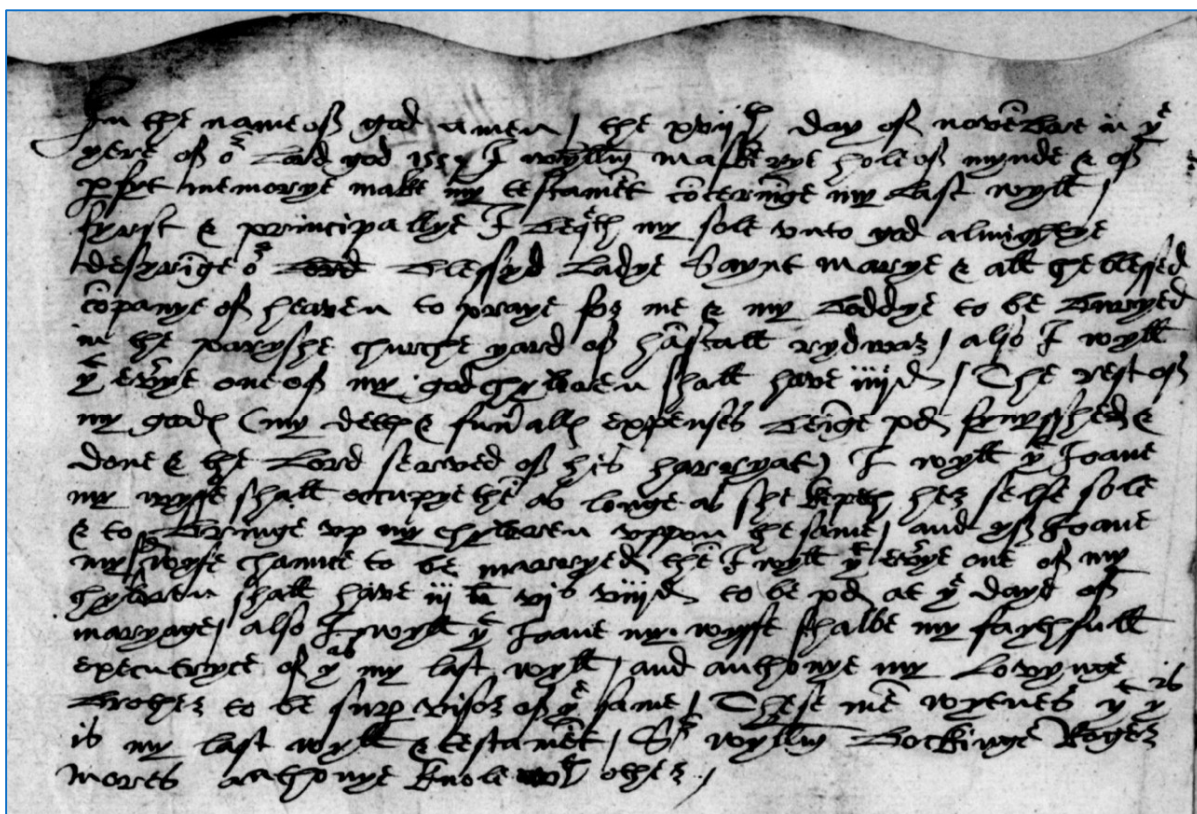 In the name off god amen / the xviijth day off novēbare in ye
yere off or Lord god 155 I wyllm maskerye hole off mynde & off
pfyt memorye make my testamēt cōcernīge my last wyll /
fyrst & principallye I beqth my sole unto god almightye
desyrīge or blessyd Ladye Saynt marye & all the blessed
cōpanye off heaven to praye for me & my boddye to be buryed
in the paryshe churche yard off hāstall rydwar / also I wyll
yt evrye one off my godchyldren shall have iiijd / The rest off
my gods (my detts & funralls expenses beīge pd fynysshed &
done & the Lord served off his harryat) I wyll yt Joane
my wyffe shall occupye thē as longe as she kepeth her selfe sole
& to bringe up my chyldren uppon the same / and yff Joane
my wyfe chaunce to be marryed thē I wyll yt evrye one of my
chyldren shall have iij li vjs viijd to be pd at ye daye off
maryage / also I wyll yt Joane my wyffe shalbe my faythfull
executryce of ys my last wyll / and anthonye my Lovynge
brother to be supvisor off ye same / These mē wytnes yt ys
is my last wyll & testamēt / Sr wyllm bockinge Roger
mores anthonye knole wth other /